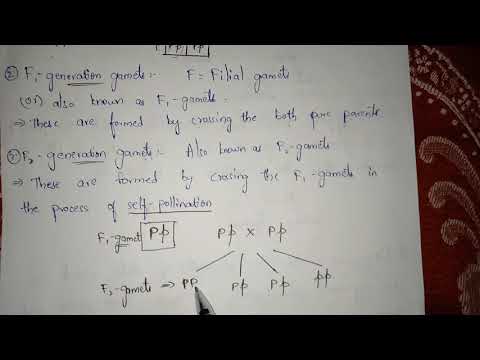 PP PP
② F₁-generation gamets:- F = Filial gamets
(or) also known as F₁-gamets.
⇒ These are formed by crossing the both pure parents
② F₂-generation gamets:- Also known as F₂-gamets
⇒ These are formed by crosing the F₁-gamets in
the process of self-pollination
F₁-gamet Pp Pp × Pp
F₂-gamets ⇒ PP Pp Pp pp